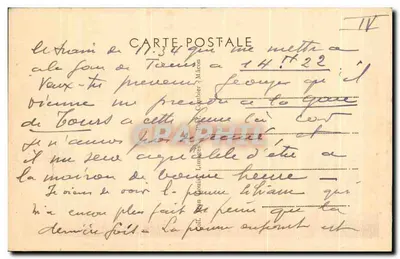 IV
CARTE POSTALE
le train de 11.34 qui me mettra a
a la gare de Tours a 14 H 22
Veux-tu prevenir Georges qu'il
vienne me prendre a la gare
de Tours a cette heure là car
je n'aurai pas et
il me sera agreable d'être a
la maison de bonne heure -
Je viens de voir la pauvre Liliane qui
m'a encore plus fait de peine que la
dernière fois la pauvre enfant est